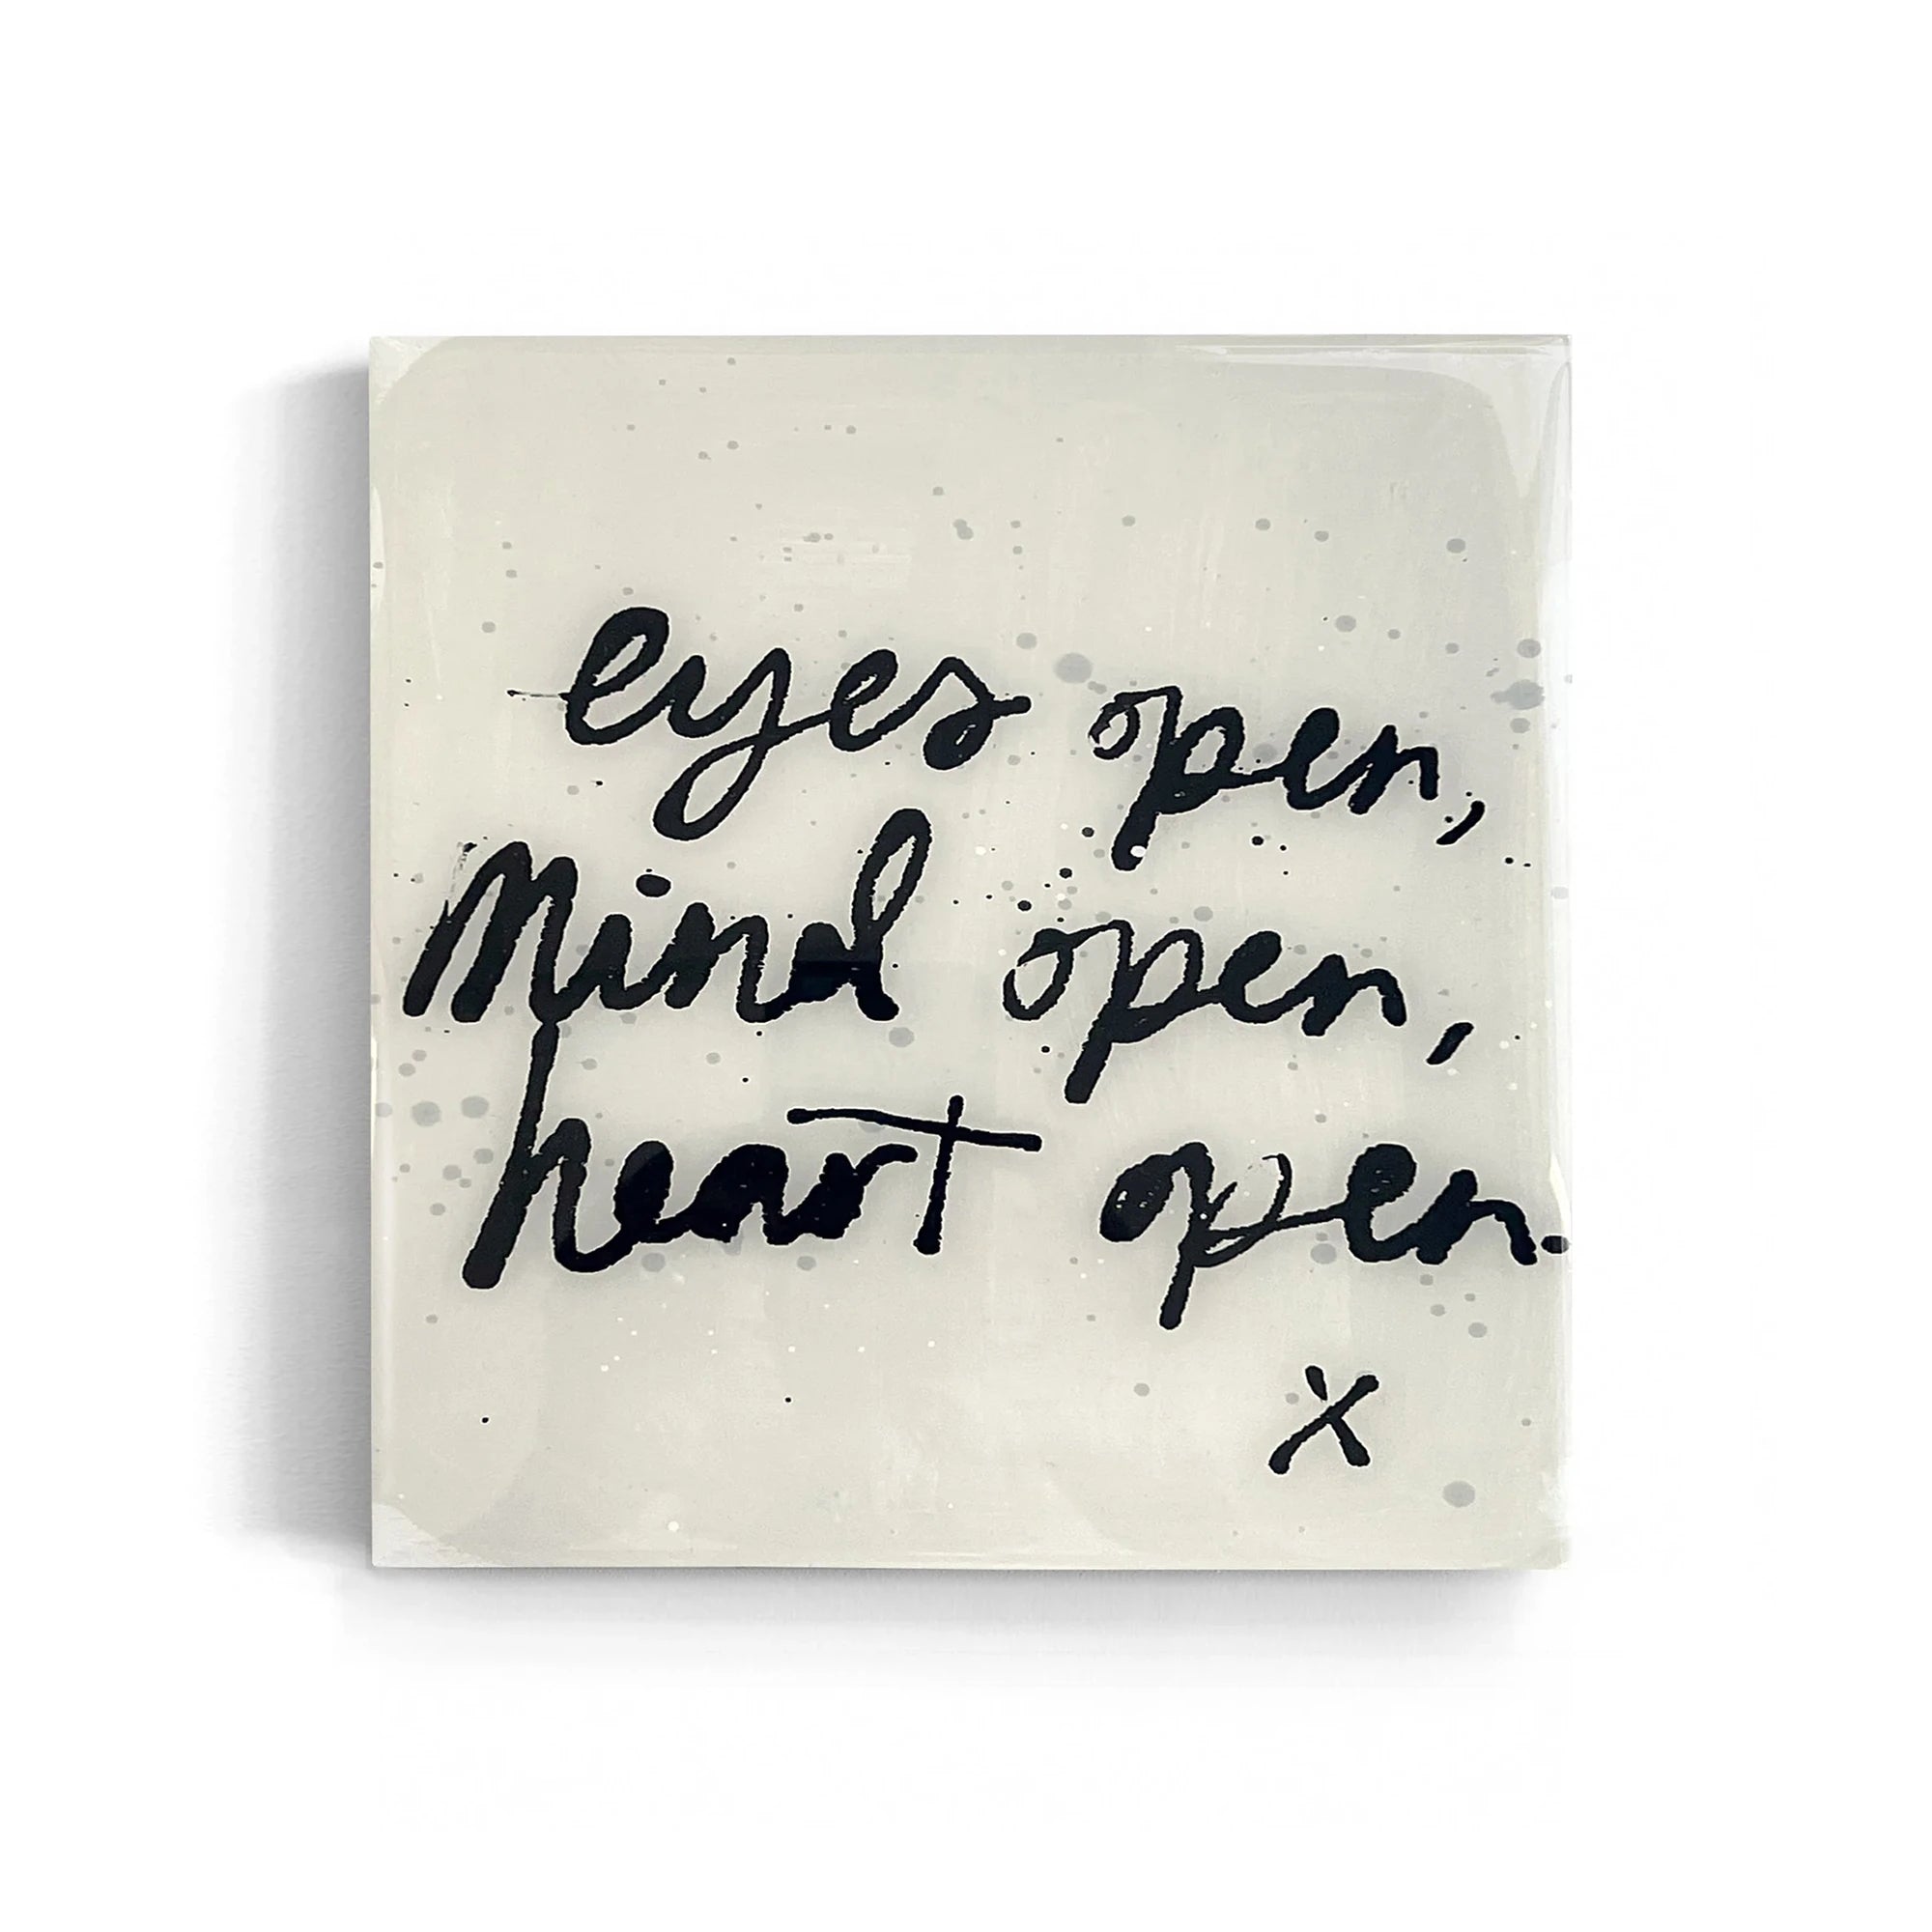 eyes open,
mind open,
heart open.
x